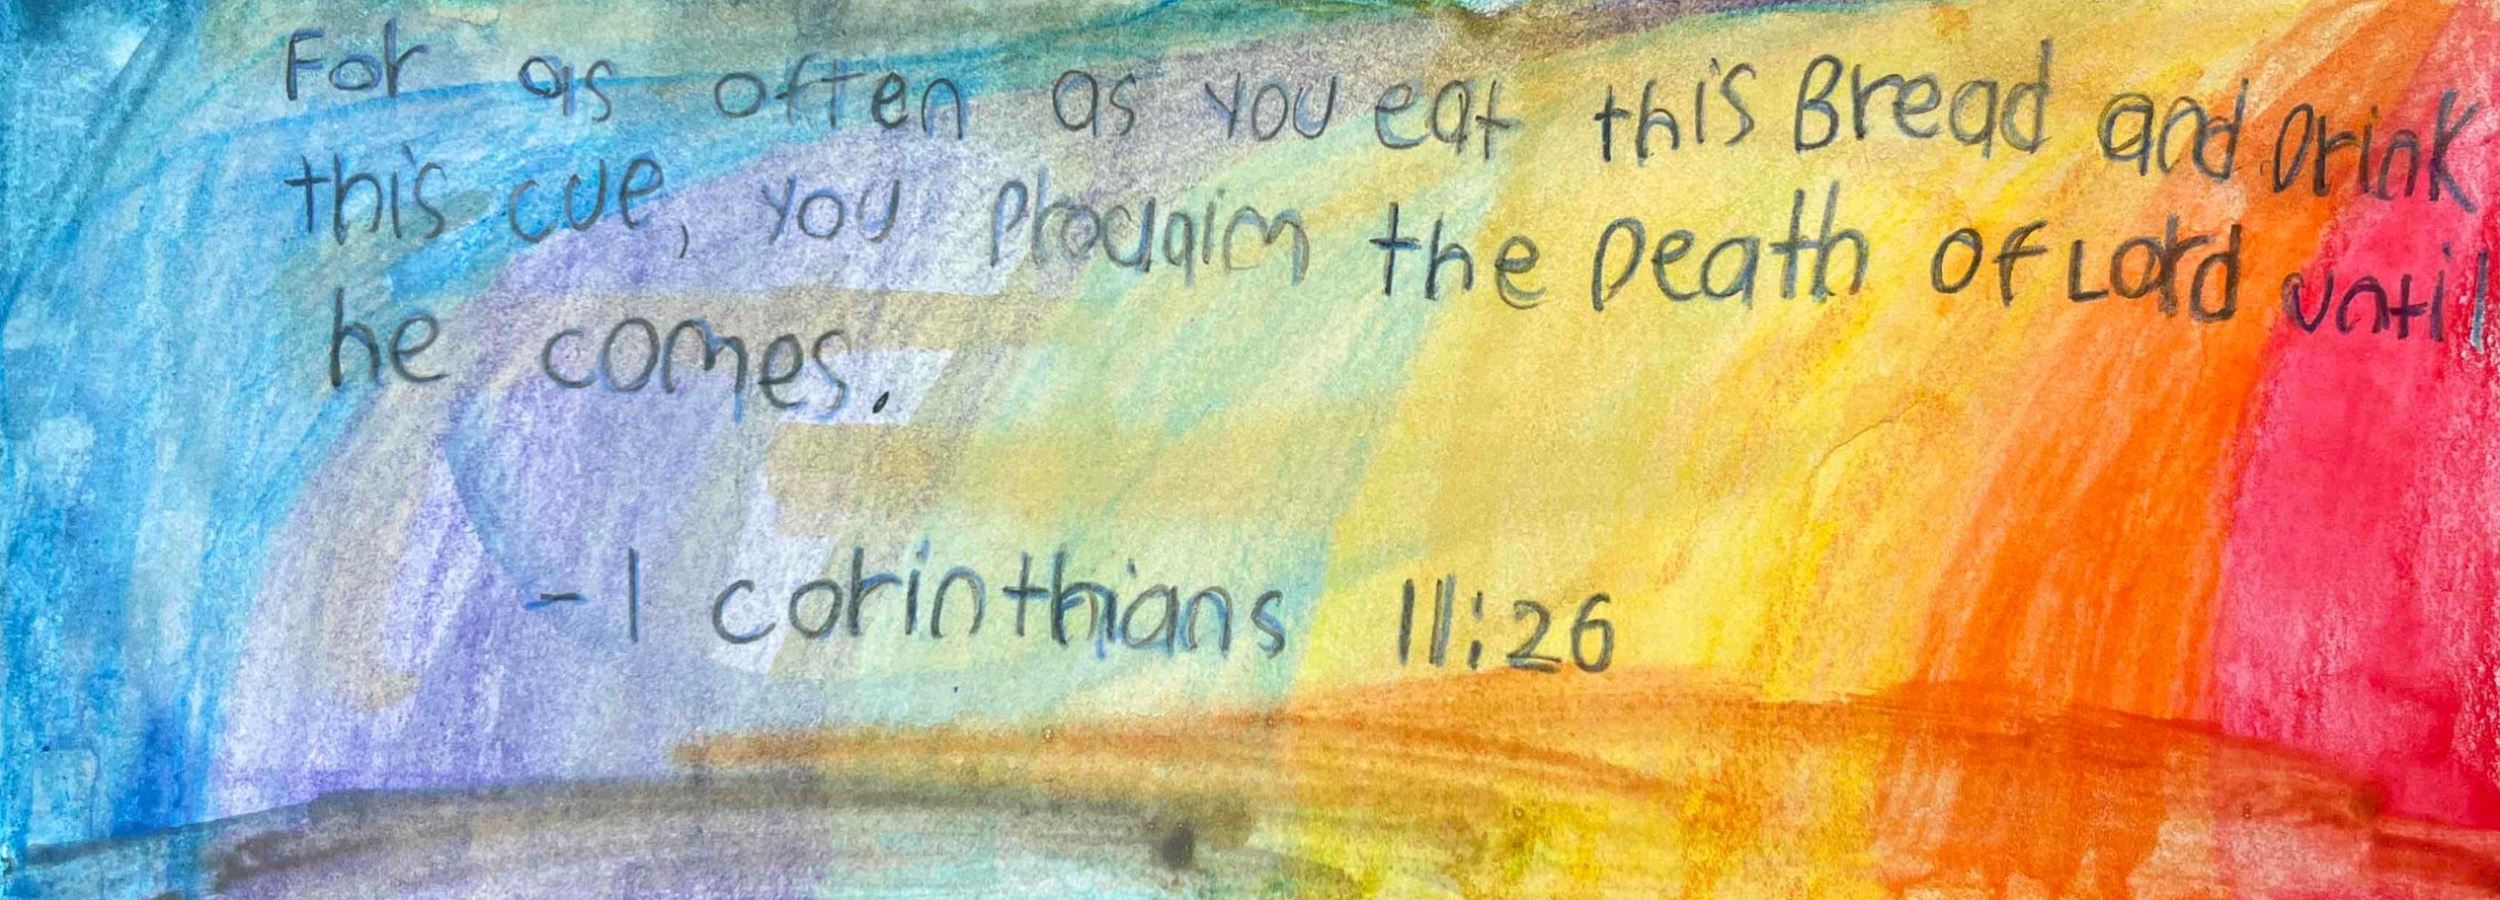 For as often as you eat this Bread and Drink
this cue, you Proclaim the Death of Lord until
he comes.
- 1 corinthians 11:26